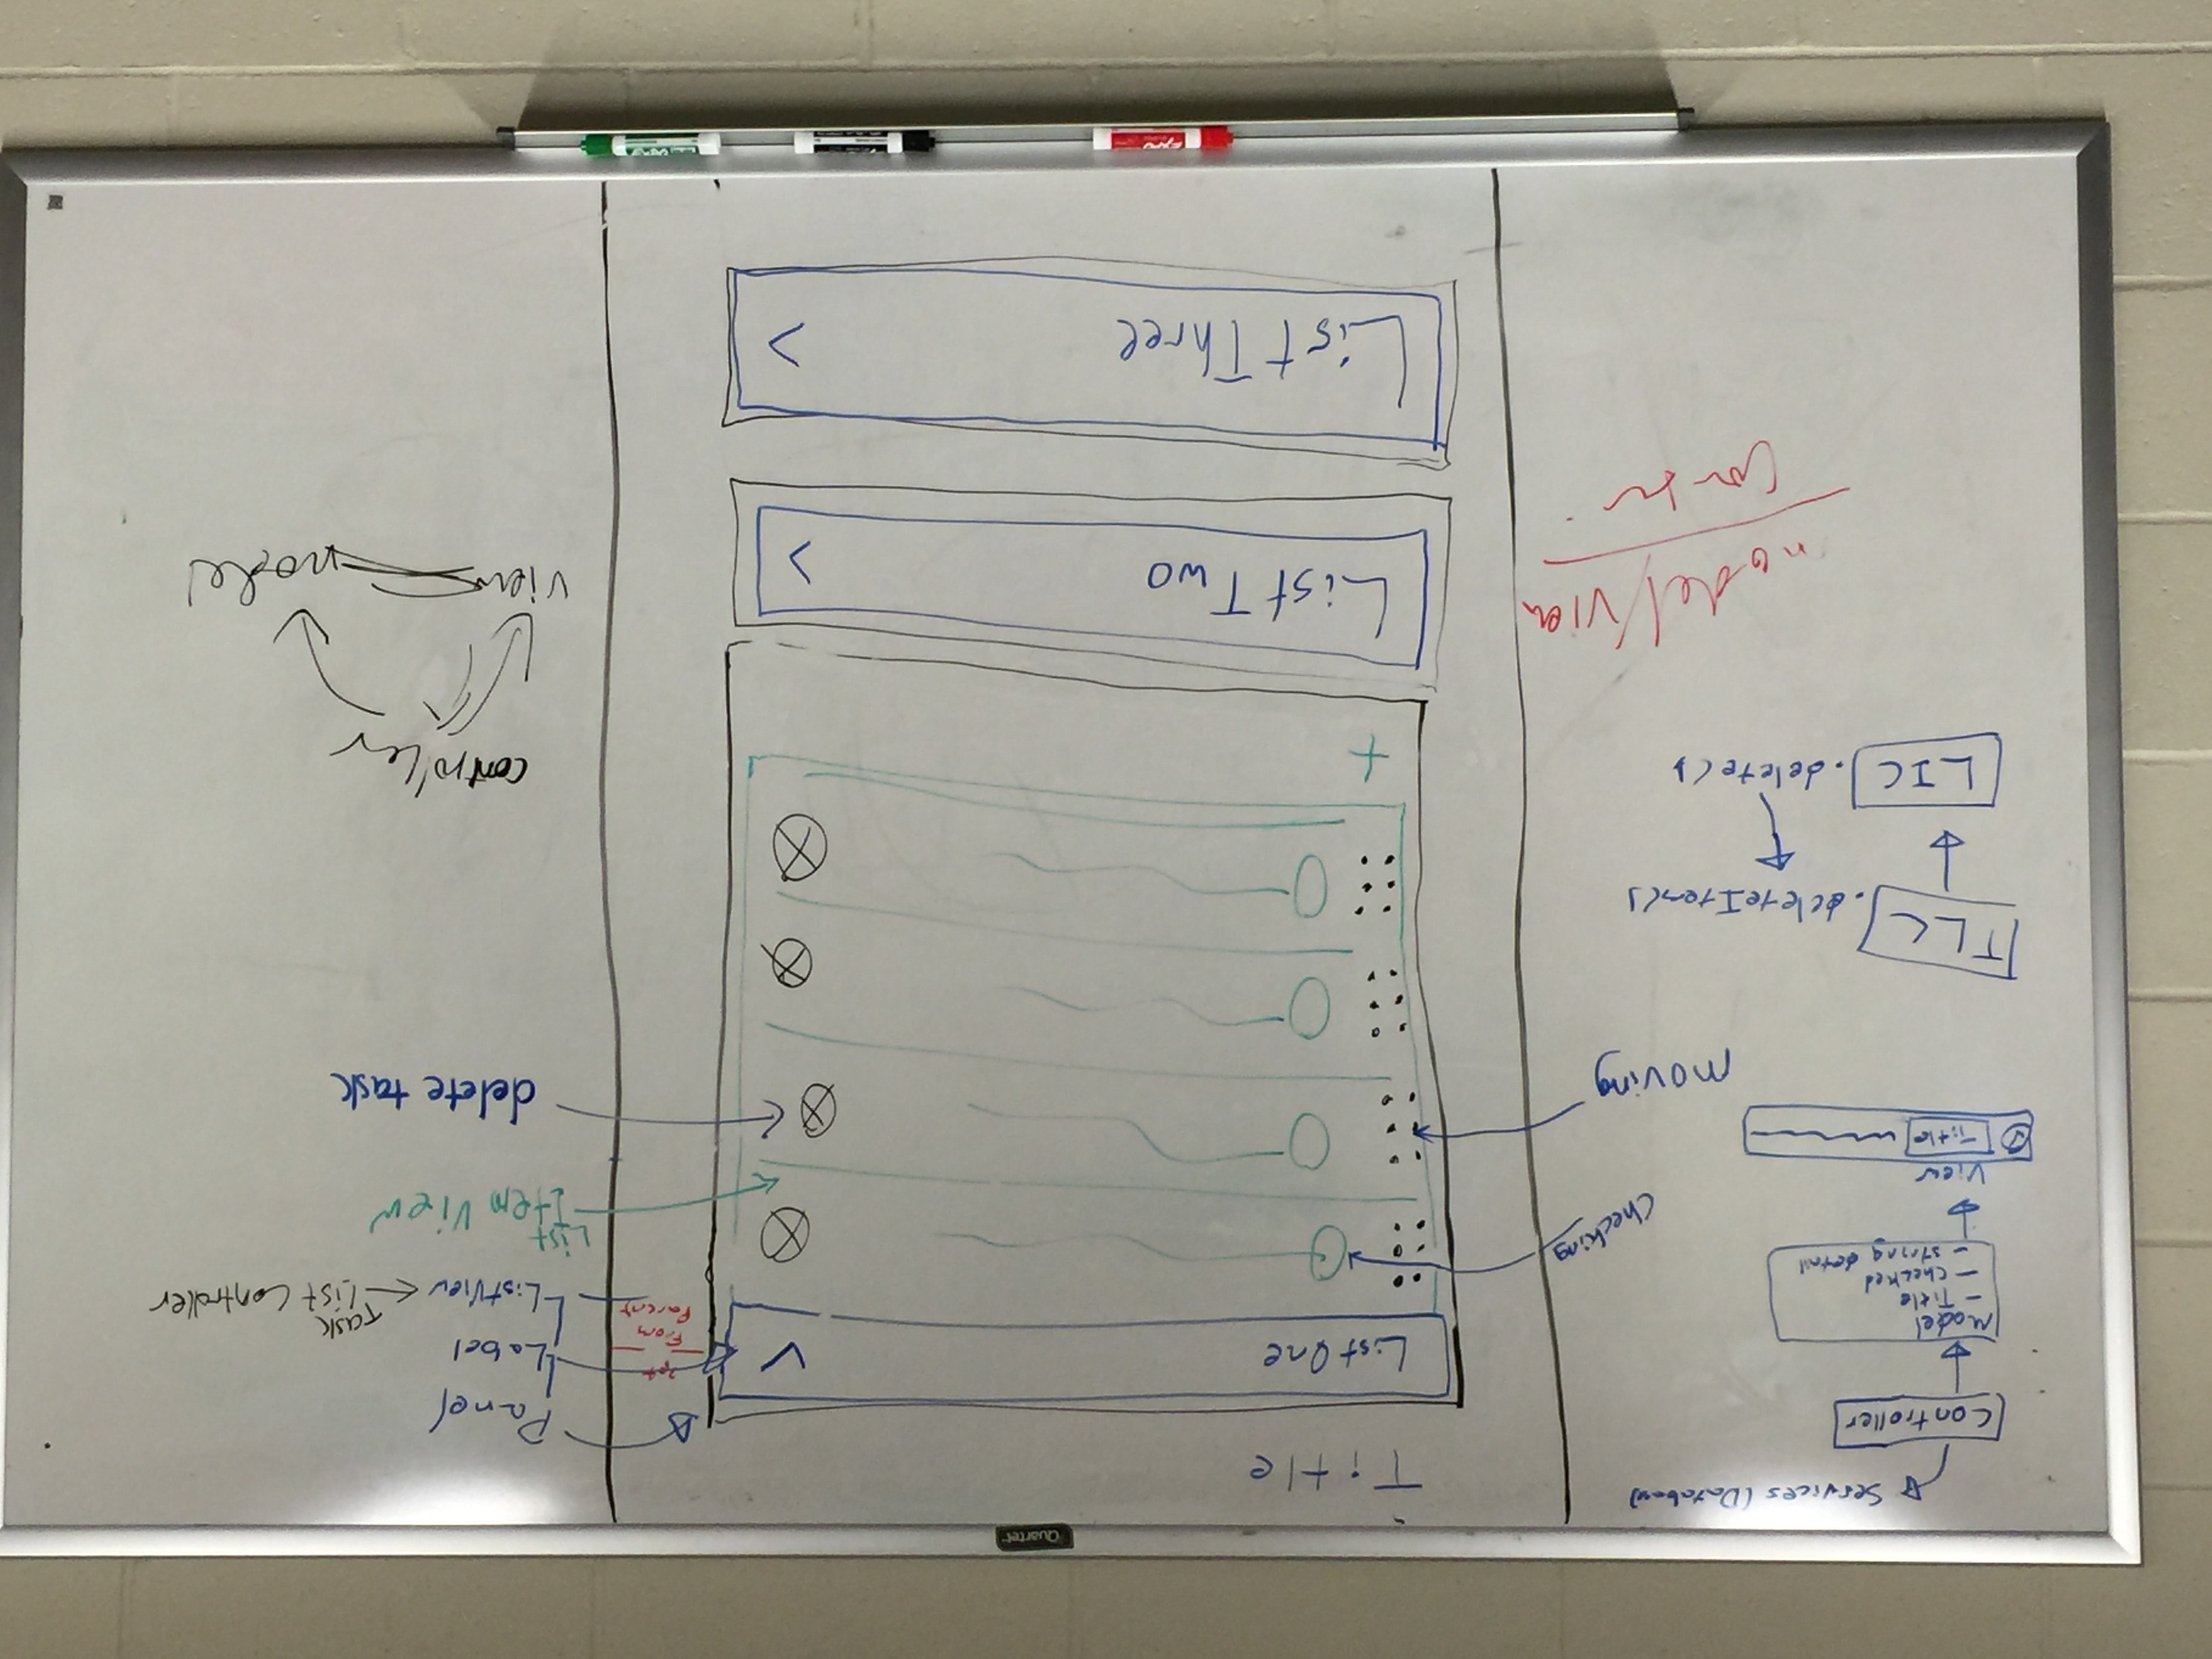 Quartet
Services (Database)
Controller
Model
- Title
- Checked
- string detail
View
Title
checking
moving
TLC
.deleteItem()
LIC
.delete()
model/view
Title
List One
List Two
>
List Three
>
+
Panel
Label
ListView
Task
List Controller
From
Parent
List
Item View
delete task
controller
view
model
EXPO